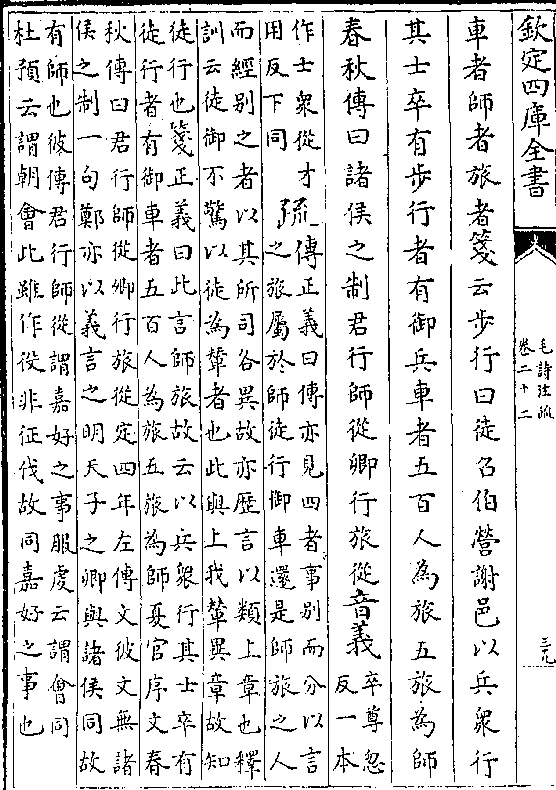 欽定四庫全書
毛詩注疏
卷二十二
三九
車者師者旅者箋云步行曰徒召伯營謝邑以兵衆行
其士卒有步行者有御兵車者五百人為旅五旅為師
春秋傳曰諸侯之制君行師從卿行旅從音義
卒尊忽
反一本
作士衆從才
用反下同
疏
傳正義曰傳亦見四者事别而分以言
之旅屬於師徒行御車還是師旅之人
而經别之者以其所司各異故亦歴言以類上章也釋
訓云徒御不驚以徒為輦者也此與上我輦異章故知
徒行也箋正義曰此言師旅故云以兵衆行其士卒有
徒行者有御車者五百人為旅五旅為師夏官序文春
秋傳曰君行師從卿行旅從定四年左傳文彼文無諸
侯之制一句鄭亦以義言之明天子之卿與諸侯同故
有師也彼傳君行師從謂嘉好之事服虔云謂會同
杜預云謂朝會此雖作役非征伐故同嘉好之事也